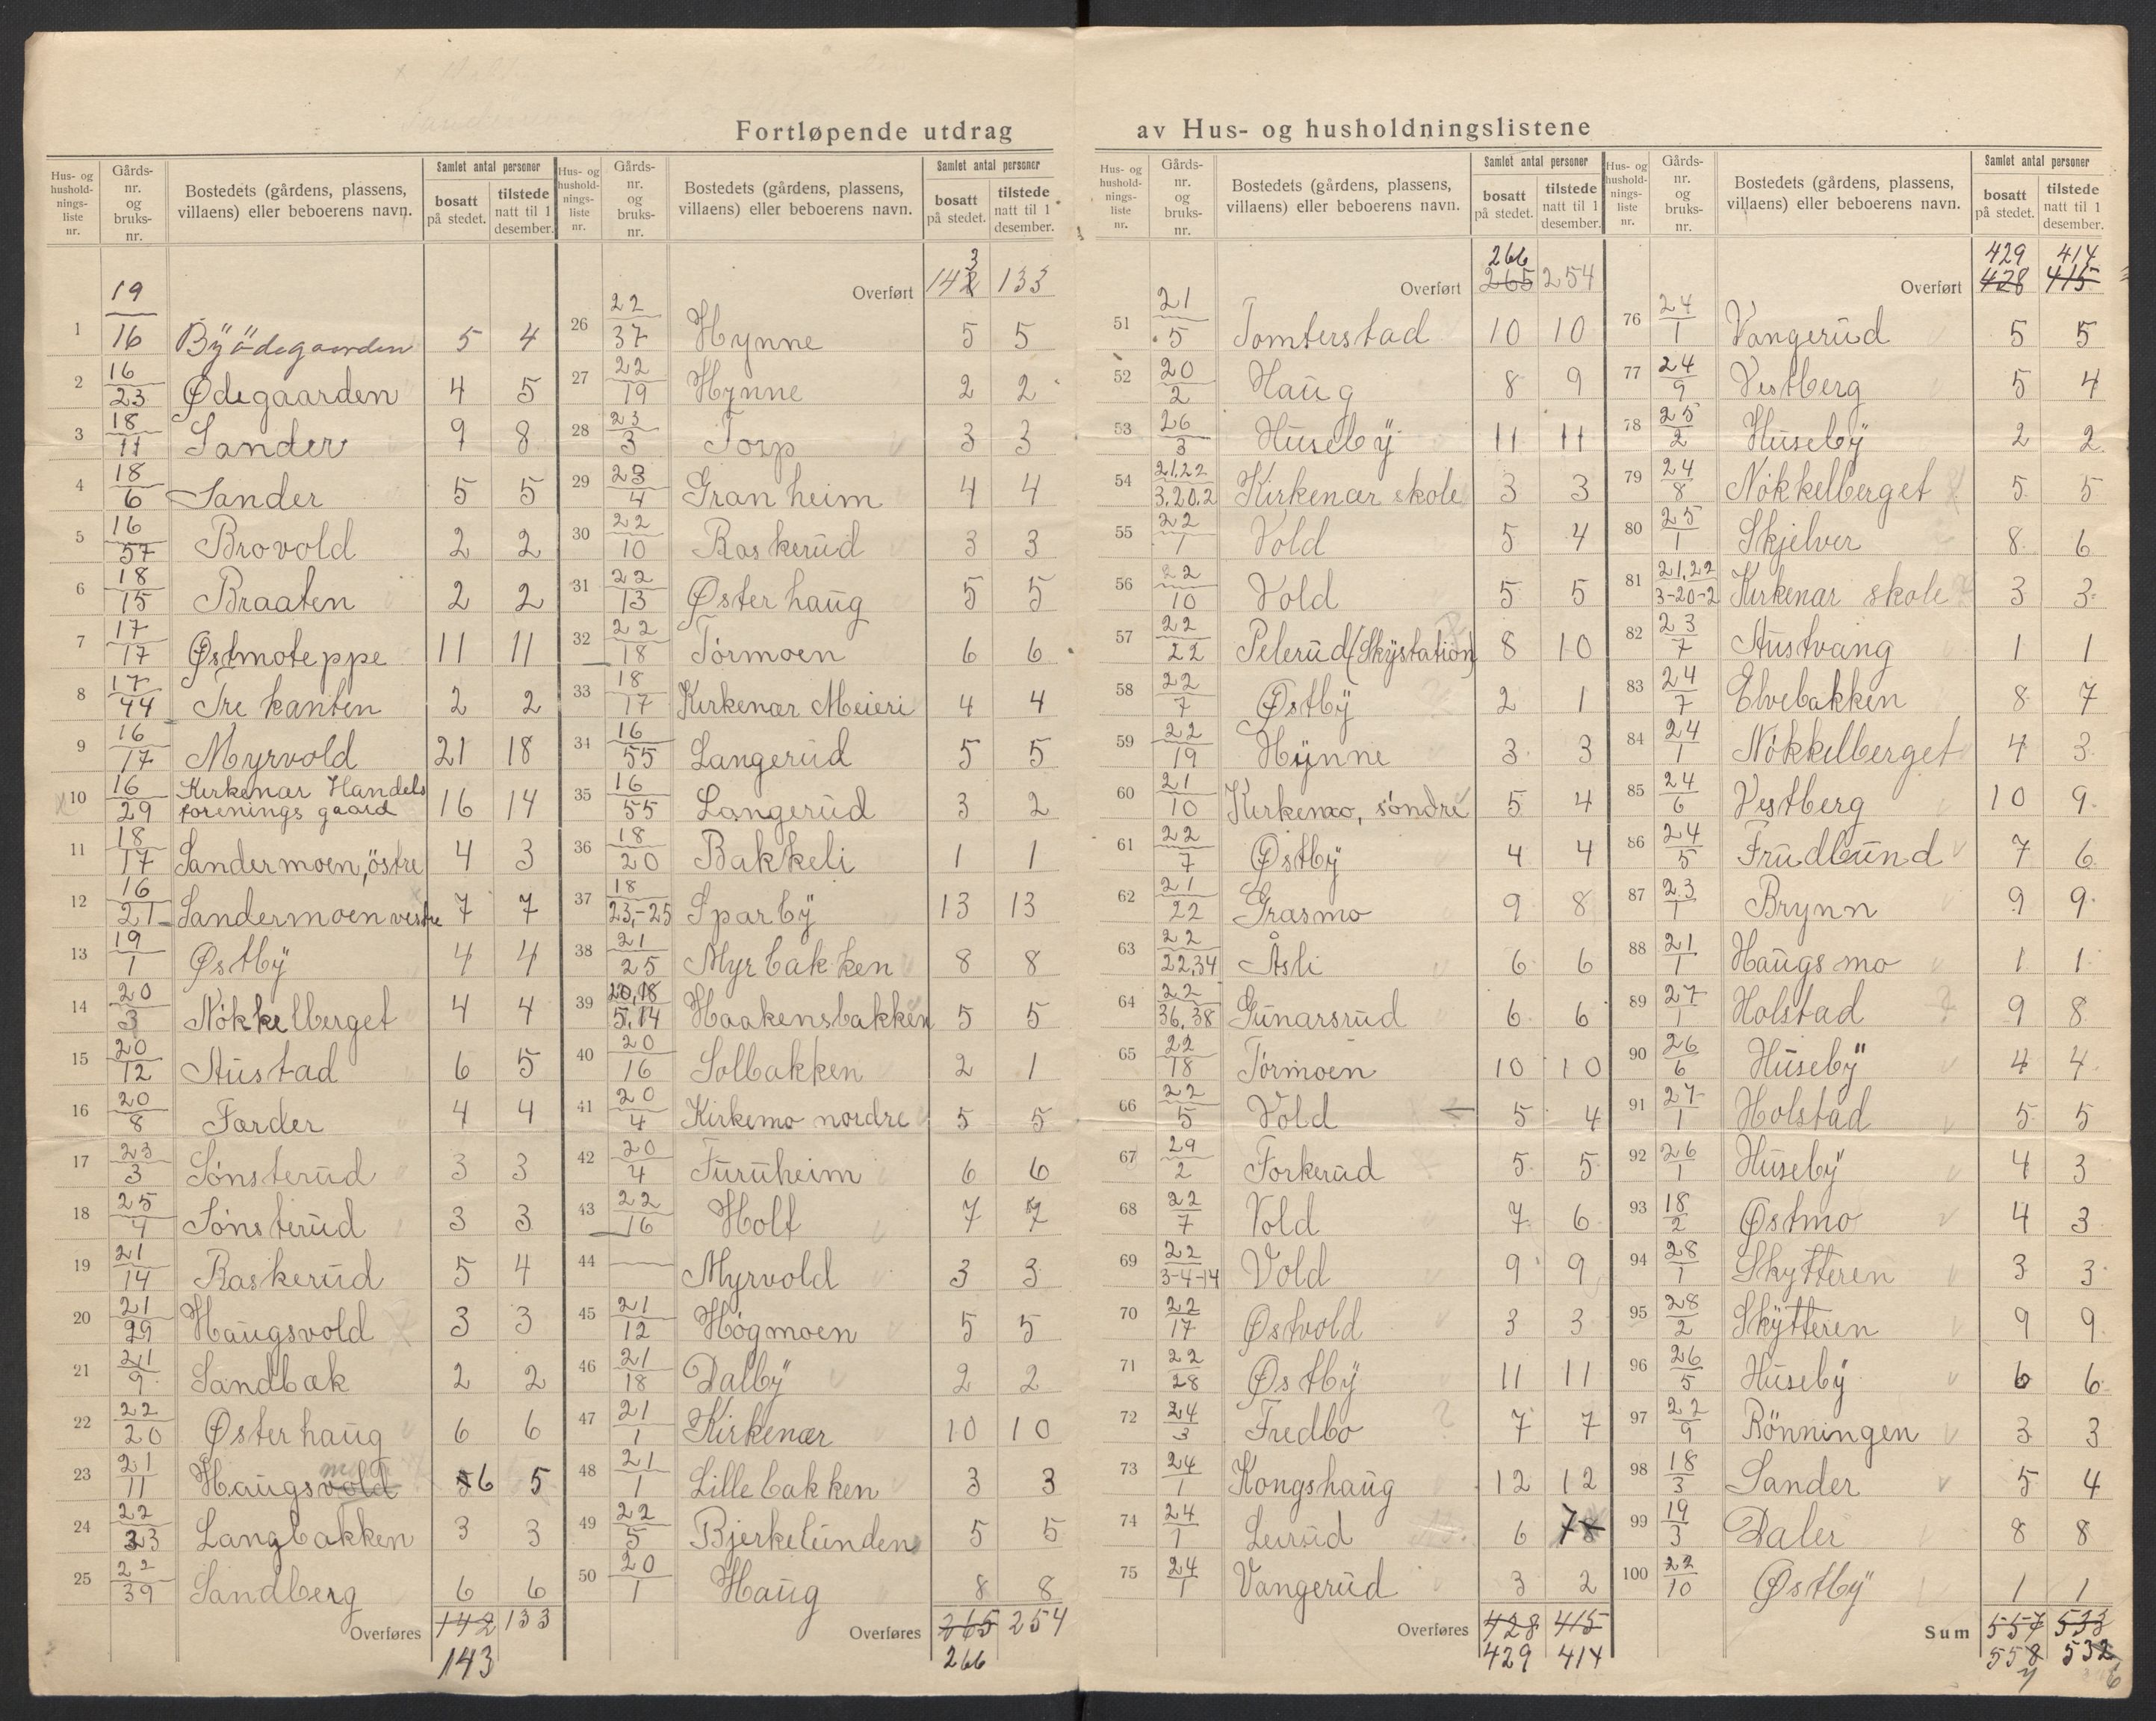 Fortløpende utdrag av Hus- og husholdningslistene
Hus- og husholdnings-liste nr. | Gårds-nr. og bruks-nr. | Bostedets (gårdens, plassens, villaens) eller beboerens navn. | Samlet antal personer | bosatt på stedet. | tilstede natt til 1 desember.
1 19/16 Byödegaarden 5 4
2 16/23 Ødegaarden 4 5
3 18/11 Sander 9 8
4 18/6 Sander 5 5
5 16/57 Brovold 2 2
6 18/15 Braaten 2 2
7 17/17 Østmoteppe 11 11
8 17/44 Trekanten 2 2
9 16/17 Myrvold 21 18
10 16/29 Kirkenær Handels
forenings gaard 16 14
11 18/17 Sandermoen, östre 4 3
12 16/21 Sandermoen vestre 7 7
13 19/1 Østby 4 4
14 20/3 Nökkelberget 4 4
15 20/12 Austad 6 5
16 20/8 Farder 4 4
17 23/3 Sönsterud 3 3
18 25/4 Sönsterud 3 3
19 21/14 Raskerud 5 4
20 21/29 Haugsvold 3 3
21 21/9 Sandbak 2 2
22 22/20 Østerhaug 6 6
23 21/11 Haugsvold 6 5
24 22/23 Langbakken 3 3
25 22/39 Sandberg 6 6
Overføres 142 133
143
Hus- og husholdnings-liste nr. | Gårds-nr. og bruks-nr. | Bostedets (gårdens, plassens, villaens) eller beboerens navn. | Samlet antal personer | bosatt på stedet. | tilstede natt til 1 desember.
3
Overført 142 133
26 22/37 Hynne 5 5
27 22/19 Hynne 2 2
28 23/3 Torp 3 3
29 23/4 Granheim 4 4
30 22/10 Raskerud 3 3
31 22/13 Østerhaug 5 5
32 22/18 Törmoen 6 6
33 18/17 Kirkenær Meieri 4 4
34 16/55 Langerud 5 5
35 16/55 Langerud 3 2
36 18/20 Bakkeli 1 1
37 18/23,-25 Sparby 13 13
38 21/25 Myrbakken 8 8
39 20,18/5,14 Haakensbakken 5 5
40 20/16 Solbakken 2 1
41 20/4 Kirkemo nordre 5 5
42 20/4 Furuheim 6 6
43 22/16 Holt 7 7
44 — Myrvold 3 3
45 21/12 Högmoen 5 5
46 21/18 Dalby 2 2
47 21/1 Kirkenær 10 10
48 21/1 Lillebakken 3 3
49 22/5 Bjerkelunden 5 5
50 20/1 Haug 8 8
Overføres 265 254
266
Hus- og husholdnings-liste nr. | Gårds-nr. og bruks-nr. | Bostedets (gårdens, plassens, villaens) eller beboerens navn. | Samlet antal personer | bosatt på stedet. | tilstede natt til 1 desember.
266
Overført 265 254
51 21/5 Tomterstad 10 10
52 20/2 Haug 8 9
53 26/3 Huseby 11 11
54 21.22/3.20.2 Kirkenær skole 3 3
55 22/1 Vold 5 4
56 22/10 Vold 5 5
57 22/22 Pelerud (Skystation) 8 10
58 22/7 Østby 2 1
59 22/19 Hynne 3 3
60 21/10 Kirkemo, söndre 5 4
61 22/7 Østby 4 4
62 21/22 Grasmo 9 8
63 22/22,34 Åsli 6 6
64 22/36,38 Gunarsrud 6 6
65 22/18 Törmoen 10 10
66 22/5 Vold 5 4
67 29/2 Forkerud 5 5
68 22/7 Vold 7 6
69 22/3-4-14 Vold 9 9
70 22/17 Østvold 3 3
71 22/28 Østby 11 11
72 24/3 Fredbo 7 7
73 24/1 Kongshaug 12 12
74 24/1 Leirud 6 7 8
75 24/1 Vangerud 3 2
Overføres 428 415
429 414
Hus- og husholdnings-liste nr. | Gårds-nr. og bruks-nr. | Bostedets (gårdens, plassens, villaens) eller beboerens navn. | Samlet antal personer | bosatt på stedet. | tilstede natt til 1 desember.
429 414
Overført 428 415
76 24/1 Vangerud 5 5
77 24/9 Vestberg 5 4
78 25/2 Huseby 2 2
79 24/8 Nökkelberget 5 5
80 25/1 Skjelver 8 6
81 21,22/3-20-2 Kirkenær skole 3 3
82 23/7 Austvang 1 1
83 24/7 Elvebakken 8 7
84 24/1 Nökkelberget 4 3
85 24/6 Vestberg 10 9
86 24/5 Frudlund 7 6
87 23/1 Brynn 9 9
88 21/1 Haugsmo 1 1
89 27/1 Holstad 9 8
90 26/6 Huseby 4 4
91 27/1 Holstad 5 5
92 26/1 Huseby 4 3
93 18/2 Østmo 4 3
94 28/1 Skytteren 3 3
95 28/2 Skytteren 9 9
96 26/5 Huseby 6 6
97 22/9 Rönningen 3 3
98 18/3 Sander 5 4
99 19/3 Daler 8 8
100 22/10 Østby 1 1
Sum 557 533
558 532
7 6